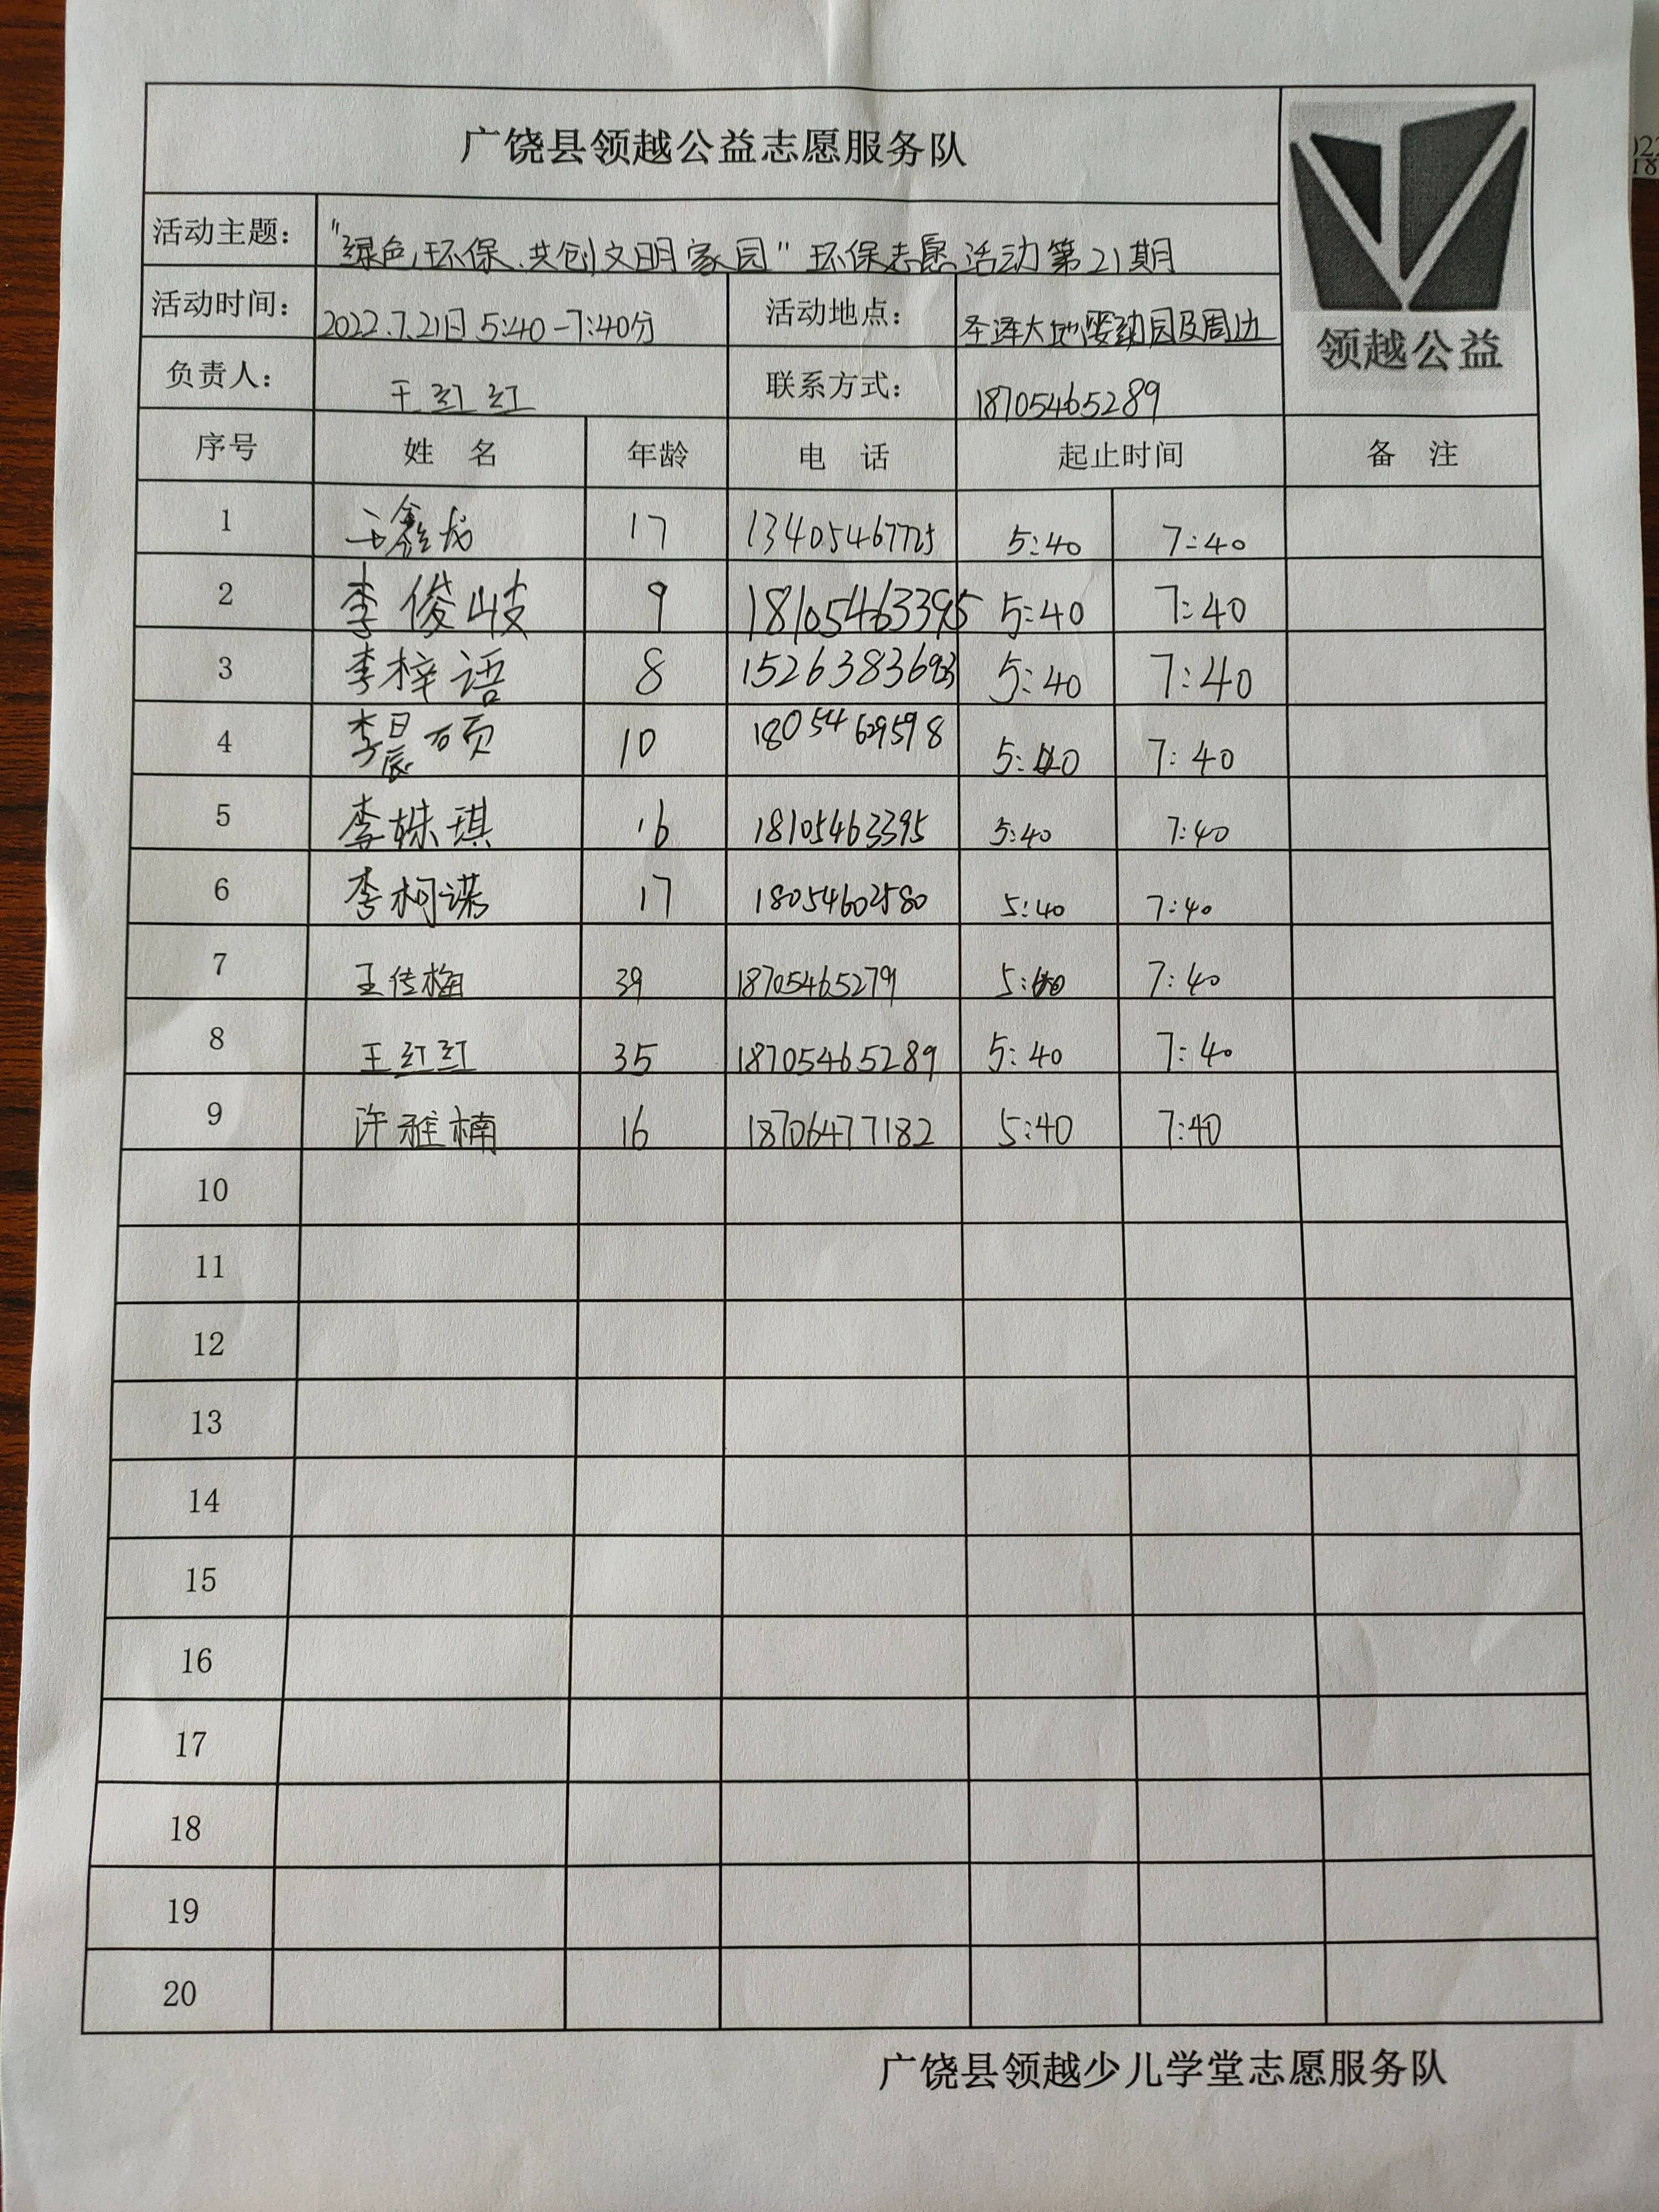 广饶县领越公益志愿服务队
领越公益
活动主题： "绿色,环保、共创文明家园"环保志愿活动第21期
活动时间： 2022.7.21日 5:40-7:40分 活动地点： 圣泽大地婴幼园及周边
负责人： 王红红 联系方式： 18705465289
序号 姓 名 年龄 电 话 起止时间 备 注
1 王鑫龙 17 13405467725 5:40 7:40
2 李俊岐 9 18105463395 5:40 7:40
3 李梓语 8 15263836923 5:40 7:40
4 李晨硕 10 18054629598 5:40 7:40
5 李姝琪 16 18105463395 5:40 7:40
6 李柯诺 17 18054602580 5:40 7:40
7 王传梅 39 18705465279 5:40 7:40
8 王红红 35 18705465289 5:40 7:40
9 许雅楠 16 18706477182 5:40 7:40
10
11
12
13
14
15
16
17
18
19
20
广饶县领越少儿学堂志愿服务队